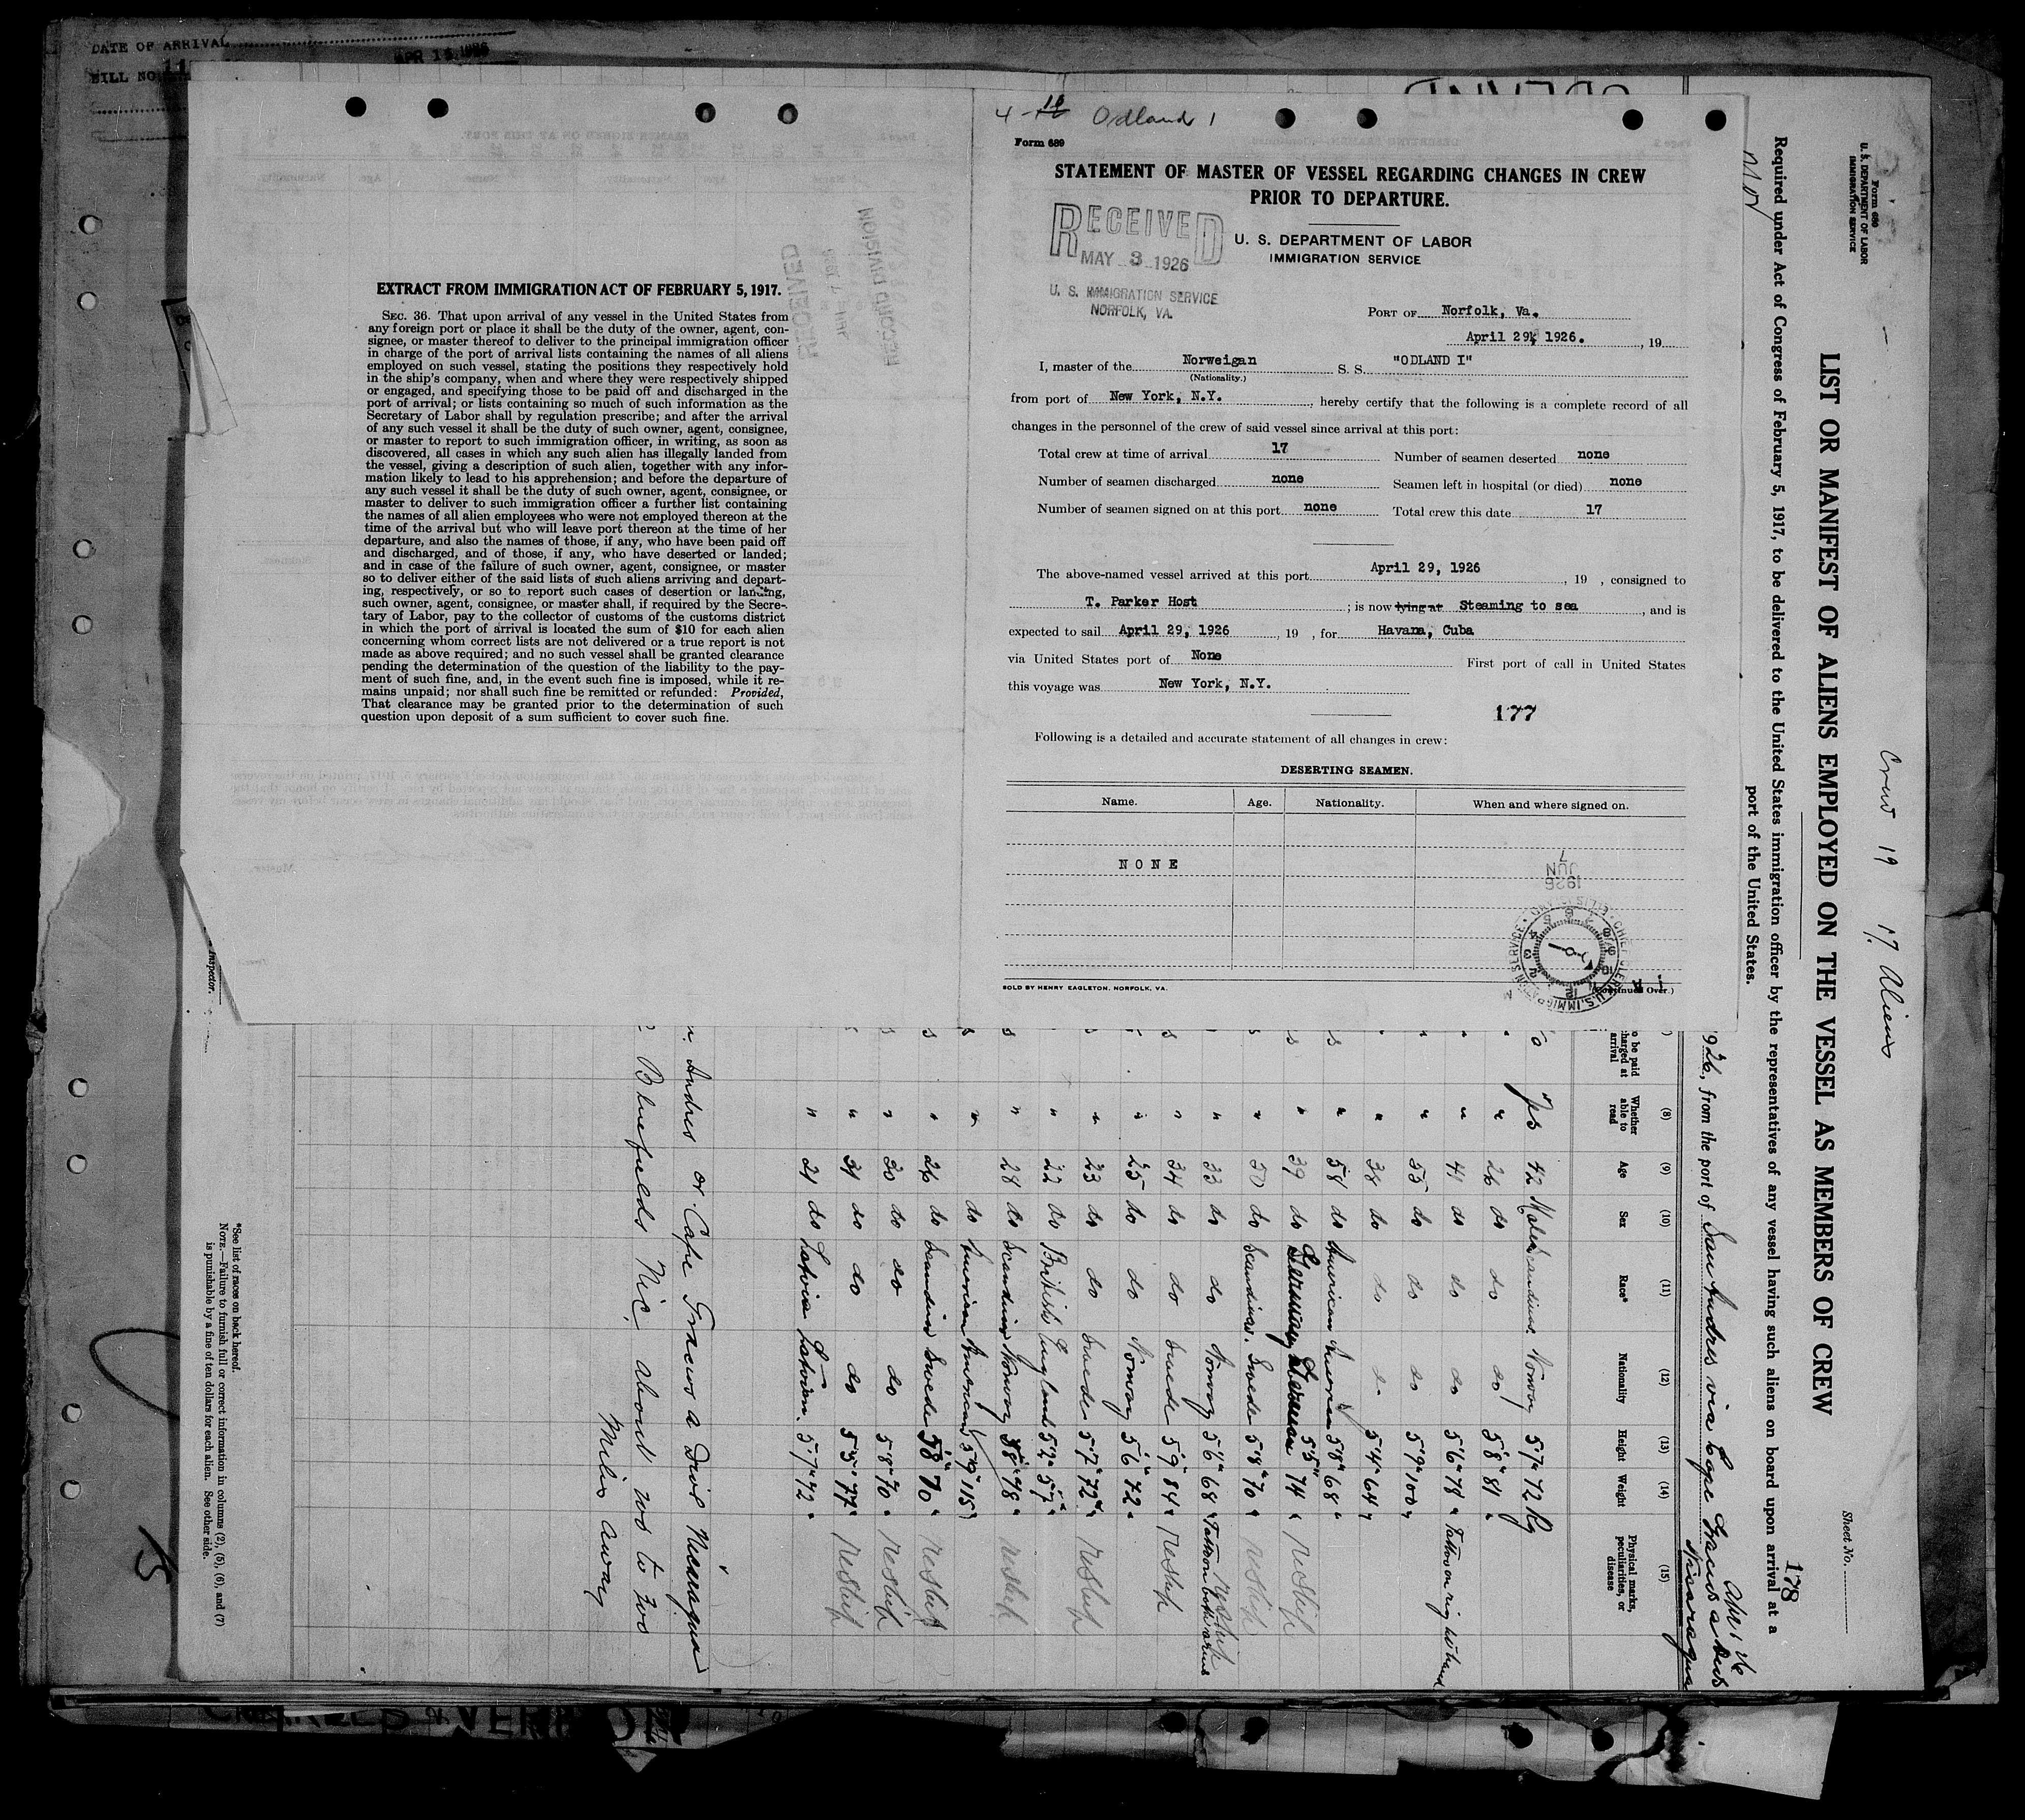 DATE OF ARRIVAL
APR 16 1926
BILL NO. 11
EXTRACT FROM IMMIGRATION ACT OF FEBRUARY 5, 1917.
SEC. 36. That upon arrival of any vessel in the United States from
any foreign port or place it shall be the duty of the owner, agent, con-
signee, or master thereof to deliver to the principal immigration officer
in charge of the port of arrival lists containing the names of all aliens
employed on such vessel, stating the positions they respectively hold
in the ship's company, when and where they were respectively shipped
or engaged, and specifying those to be paid off and discharged in the
port of arrival; or lists containing so much of such information as the
Secretary of Labor shall by regulation prescribe; and after the arrival
of any such vessel it shall be the duty of such owner, agent, consignee,
or master to report to such immigration officer, in writing, as soon as
discovered, all cases in which any such alien has illegally landed from
the vessel, giving a description of such alien, together with any infor-
mation likely to lead to his apprehension; and before the departure of
any such vessel it shall be the duty of such owner, agent, consignee, or
master to deliver to such immigration officer a further list containing
the names of all alien employees who were not employed thereon at the
time of the arrival but who will leave port thereon at the time of her
departure, and also the names of those, if any, who have been paid off
and discharged, and of those, if any, who have deserted or landed;
and in case of the failure of such owner, agent, consignee, or master
so to deliver either of the said lists of such aliens arriving and depart-
ing, respectively, or so to report such cases of desertion or landing,
such owner, agent, consignee, or master shall, if required by the Secre-
tary of Labor, pay to the collector of customs of the customs district
in which the port of arrival is located the sum of $10 for each alien
concerning whom correct lists are not delivered or a true report is not
made as above required; and no such vessel shall be granted clearance
pending the determination of the question of the liability to the pay-
ment of such fine, and, in the event such fine is imposed, while it re-
mains unpaid; nor shall such fine be remitted or refunded: Provided,
That clearance may be granted prior to the determination of such
question upon deposit of a sum sufficient to cover such fine.
RECEIVED
RECORD DIVISION
Odland 1
Form 689
STATEMENT OF MASTER OF VESSEL REGARDING CHANGES IN CREW
PRIOR TO DEPARTURE.
RECEIVED
MAY 3 1926
U. S. IMMIGRATION SERVICE
NORFOLK, VA.
U. S. DEPARTMENT OF LABOR
IMMIGRATION SERVICE
PORT OF Norfolk, Va.
April 29, 1926. , 19
I, master of the Norweigan S. S. "ODLAND I"
(Nationality.)
from port of New York, N.Y. , hereby certify that the following is a complete record of all
changes in the personnel of the crew of said vessel since arrival at this port:
Total crew at time of arrival 17 Number of seamen deserted none
Number of seamen discharged none Seamen left in hospital (or died) none
Number of seamen signed on at this port none Total crew this date 17
The above-named vessel arrived at this port April 29, 1926 , 19 , consigned to
T. Parker Host ; is now lying at Steaming to sea , and is
expected to sail April 29, 1926 , 19 , for Havana, Cuba
via United States port of None First port of call in United States
this voyage was New York, N.Y.
177
Following is a detailed and accurate statement of all changes in crew:
DESERTING SEAMEN.
Name. Age. Nationality. When and where signed on.
NONE
1926
JUN
7
SOLD BY HENRY EAGLETON, NORFOLK, VA.
(Continued Over.)
Form 680
U. S. DEPARTMENT OF LABOR
IMMIGRATION SERVICE
Crew 19 17 Aliens
Sheet No.
LIST OR MANIFEST OF ALIENS EMPLOYED ON THE VESSEL AS MEMBERS OF CREW
Required under Act of Congress of February 5, 1917, to be delivered to the United States immigration officer by the representatives of any vessel having such aliens on board upon arrival at a
port of the United States.
178
1926, from the port of San Andres via Cape Gracias a Dios
Nicaragua
(8) (9) (10) (11) (12) (13) (14) (15)
Whether able to read Age Sex Race* Nationality Height Weight Physical marks, peculiarities, or disease
Yes 42 Male Scandinav. Norway 5'7" 72 Kg
" 26 do do do 5'8" 81 "
" 41 do do do 5'6" 78 "
" 55 do do do 5'9" 100 "
" 38 do do do 5'4" 64 "
" 58 do American American 5'8" 68 "
" 39 do Germany German 5'5" 74 " Reship
" 50 do Scandinav. Swede 5'8" 70 " Reship
" 33 do do Norway 5'6" 68 " Tattoo on both arms
" 34 do do Swede 5'9" 84 " Reship
" 25 do do Norway 5'6" 72 "
" 23 do do Swede 5'7" 72 " Reship
" 22 do British England 5'2" 57 "
" 28 do Scandinav Norway 5'8" 78 " Reship
" do American American 5'9" 115
" 26 do Scandinav Swede 5'8" 70 " Reship
" 30 do do do 5'8" 70 " Reship
" 31 do do do 5'5" 77 " Reship
" 21 do Latvia Latvian 5'7" 72 "
Andres or Cape Gracias a Dios Nicaragua
Bluefields Nic. about two to 200
Miles away
*See list of races on back hereof.
NOTE.—Failure to furnish full or correct information in columns (2), (5), (6), and (7)
is punishable by a fine of ten dollars for each alien. See other side.
Inspector.